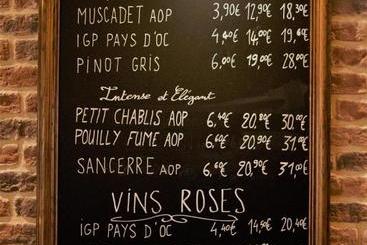 MUSCADET AOP 3,90€ 12,90€ 18,30€
IGP PAYS D'OC 4,40€ 14,00€ 19,00€
PINOT GRIS 6,00€ 19,00€ 28,00€
Intense et Elégant
PETIT CHABLIS AOP 6,40€ 20,20€ 30,00€
POUILLY FUME AOP 6,60€ 20,90€ 31,00€
SANCERRE AOP 6,60€ 20,90€ 31,00€
VINS ROSES
IGP PAYS D'OC 4,40€ 14,50€ 20,40€